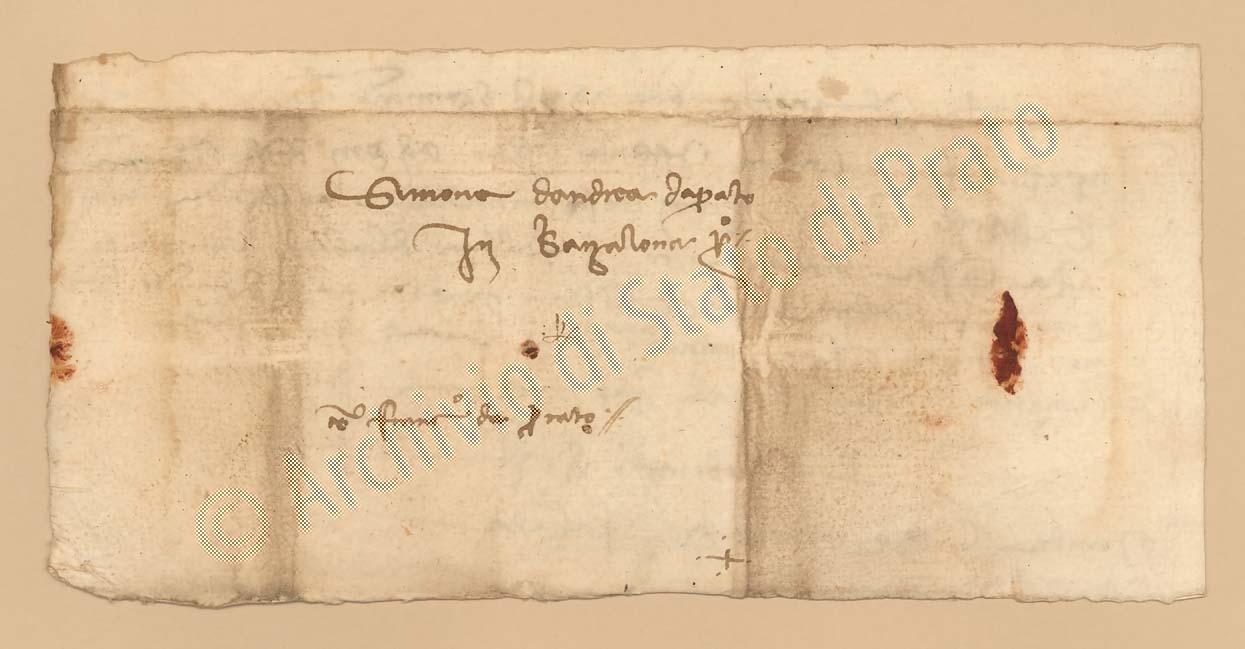 Simone dandrea daprato
In Barzalona pº
co franc° da Prato
© Archivio di Stato di Prato